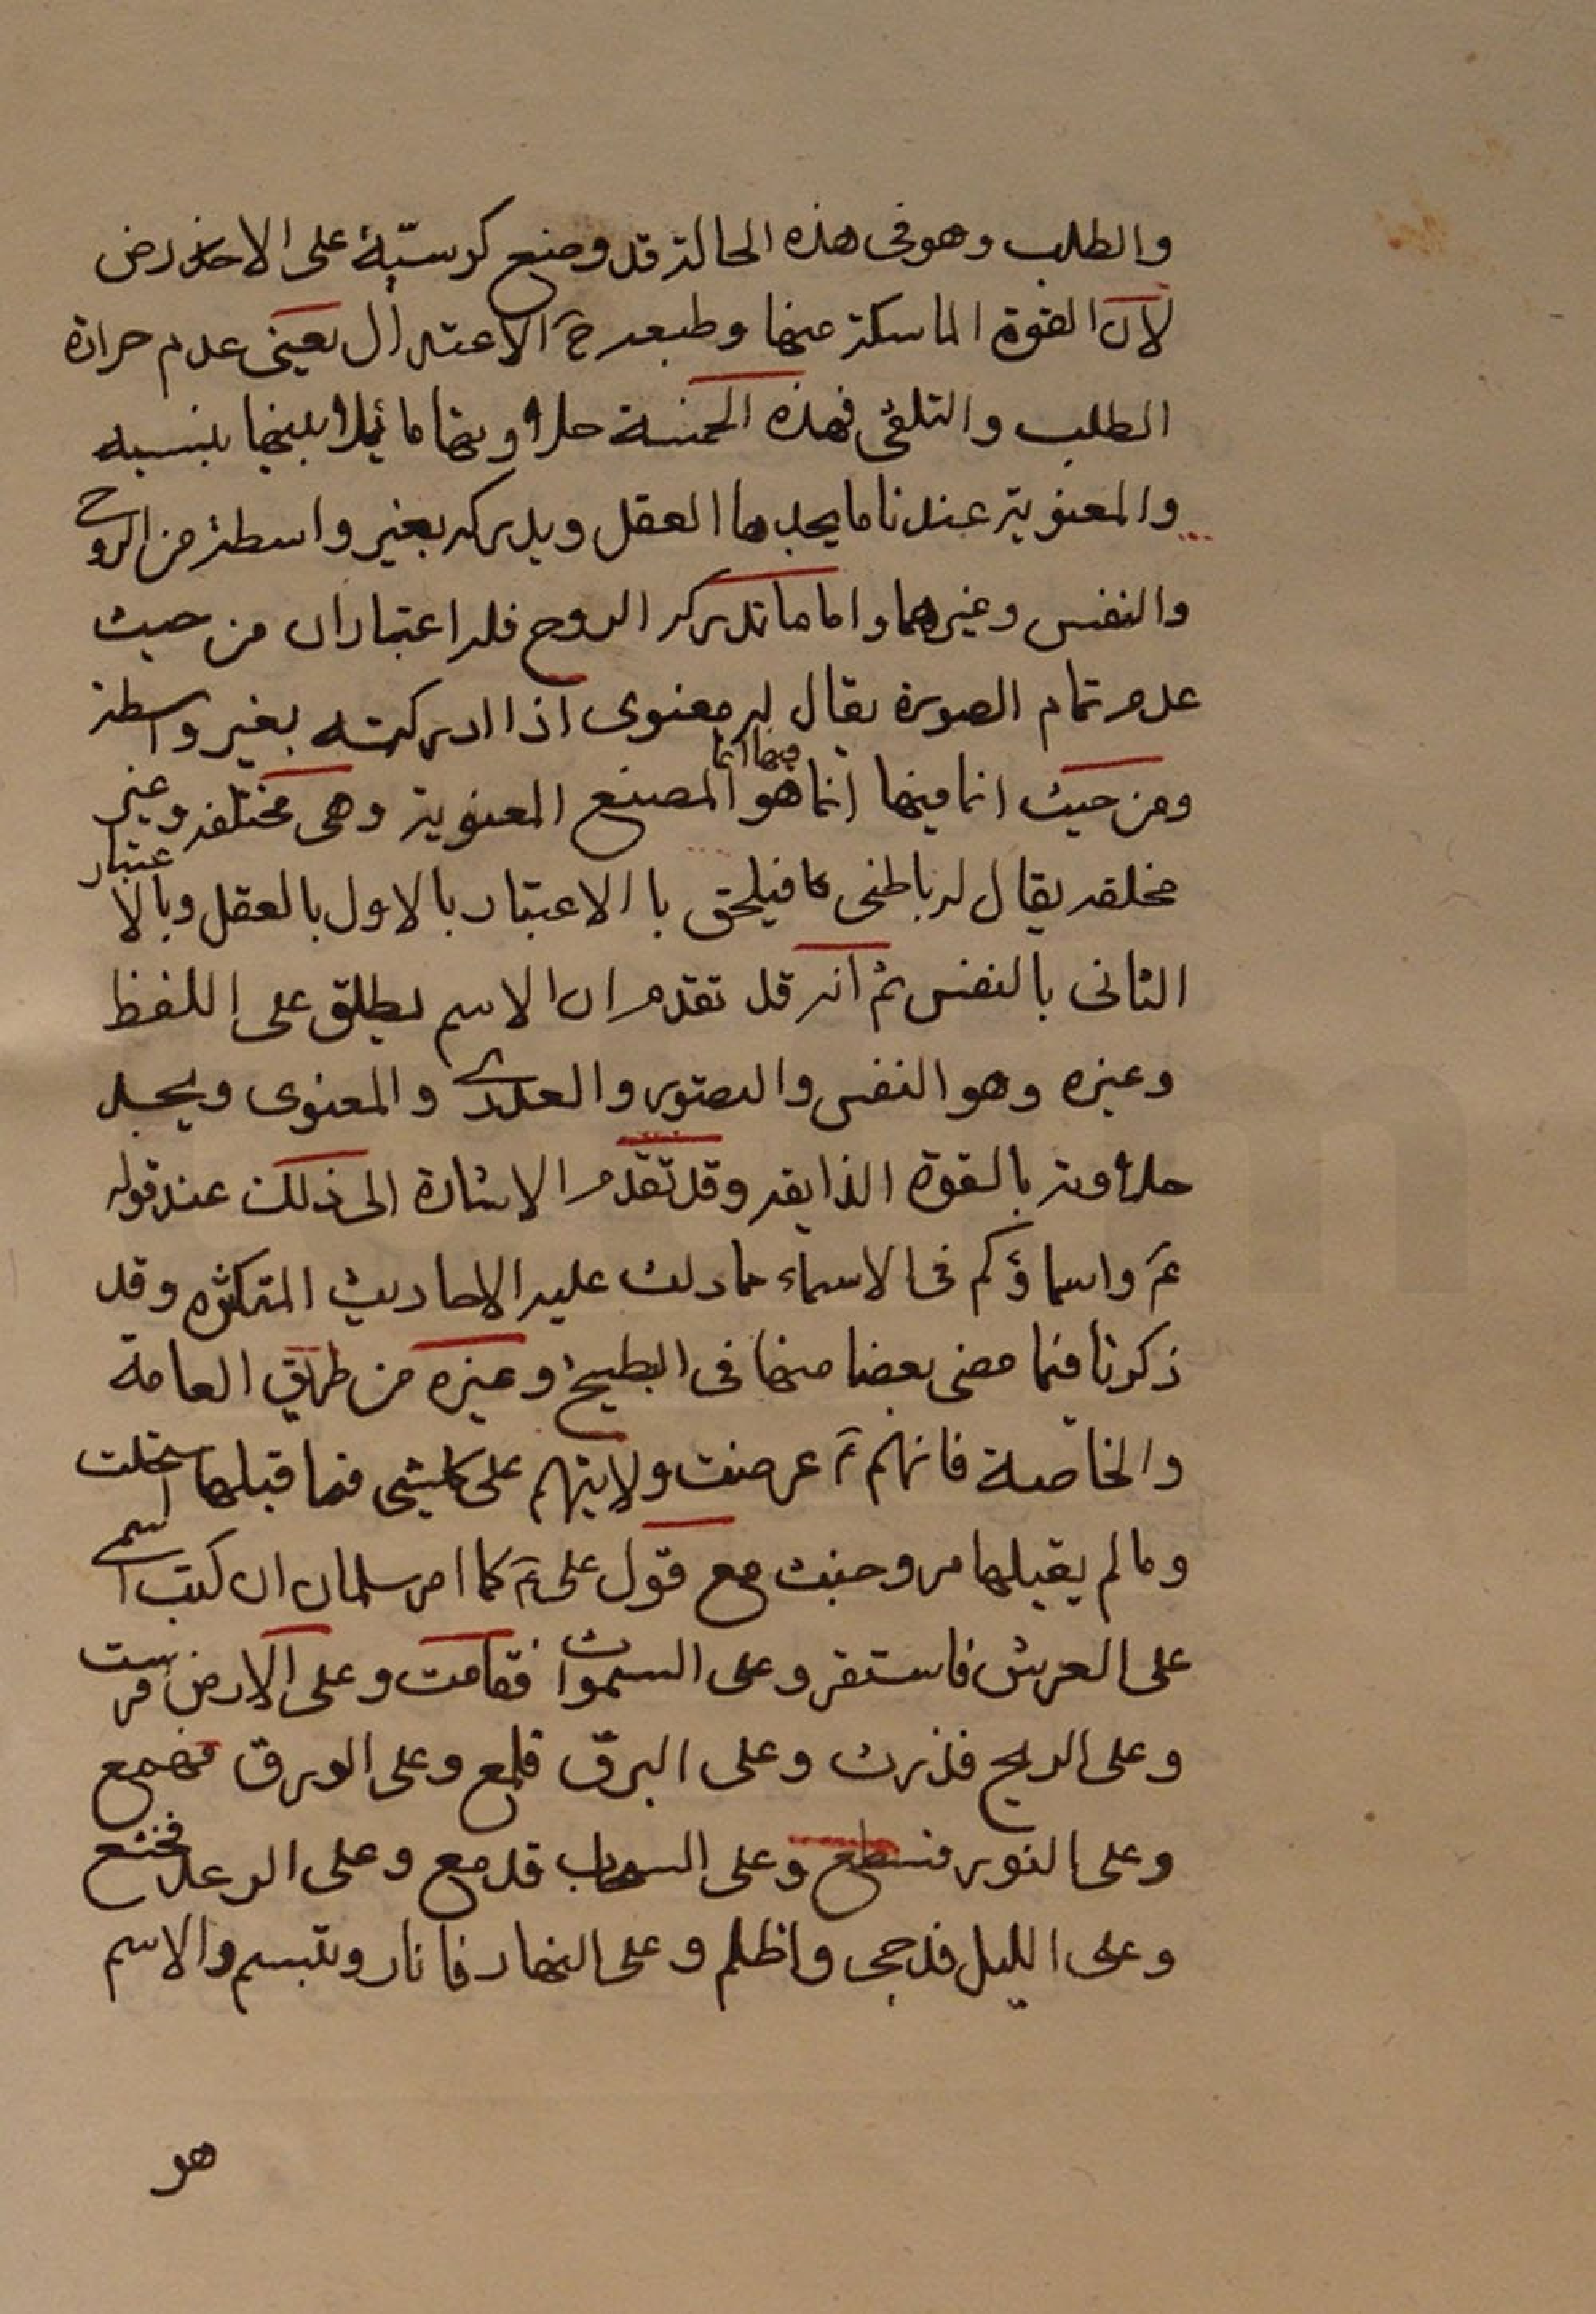 والطلب وهو فى هذه الحالة قد وضع كرسيّه على الاخذ رض
لان القوة الماسكة منها وطبعه ح الاعتدال يعنى عدم حرارة
الطلب والتلقى فهذه الخمسة حلاوتها ما بينها بنسبه
والمعنوية عندنا ما يجدها العقل ويدركه بغير واسطة من الروح
والنفس وغيرهما واما ما تدركه الروح فله اعتباران من حيث
عدم تمام الصورة يقال له معنوى اذا ادركته بغير واسطة
ومن حيث انما فيها انما هو المصنع المعنوية وهى مختلقه وغير
فيها انما
مخلقه يقال له باطنى فيلحق با الاعتبار بالاول بالعقل وبالاعتبار
الثانى بالنفس ثم انه قد تقدم ان الاسم يطلق على اللفظ
وغيره وهو النفس والتصور والعددى والمعنوى ويجد
حلاوته بالقوة الذايقه وقد تقدم الاشارة الى ذلك عند قوله
ع واسماؤكم فى الاسماء مما دلت عليه الاحاديث المتكثره وقد
ذكرنا فيما مضى بعضا منها فى البطيخ وغيره من طريق العامة
والخاصة فانهم ع عرضت ولايتهم على كلشئ فما قبلها استحلت
وما لم يقبلها مر وخبث مع قول على ع كما امر سلمان ان كتب اسمى
على العرش فاستقر وعلى السموات فقامت وعلى الارض فرست
وعلى الريح فذرت وعلى البرق فلمع وعلى الورق فهمع
وعلى النور فسطع وعلى السحاب فدمع وعلى الرعد فخشع
وعلى الليل فدجى واظلم وعلى النهار فانار وتبسم والاسم
هو